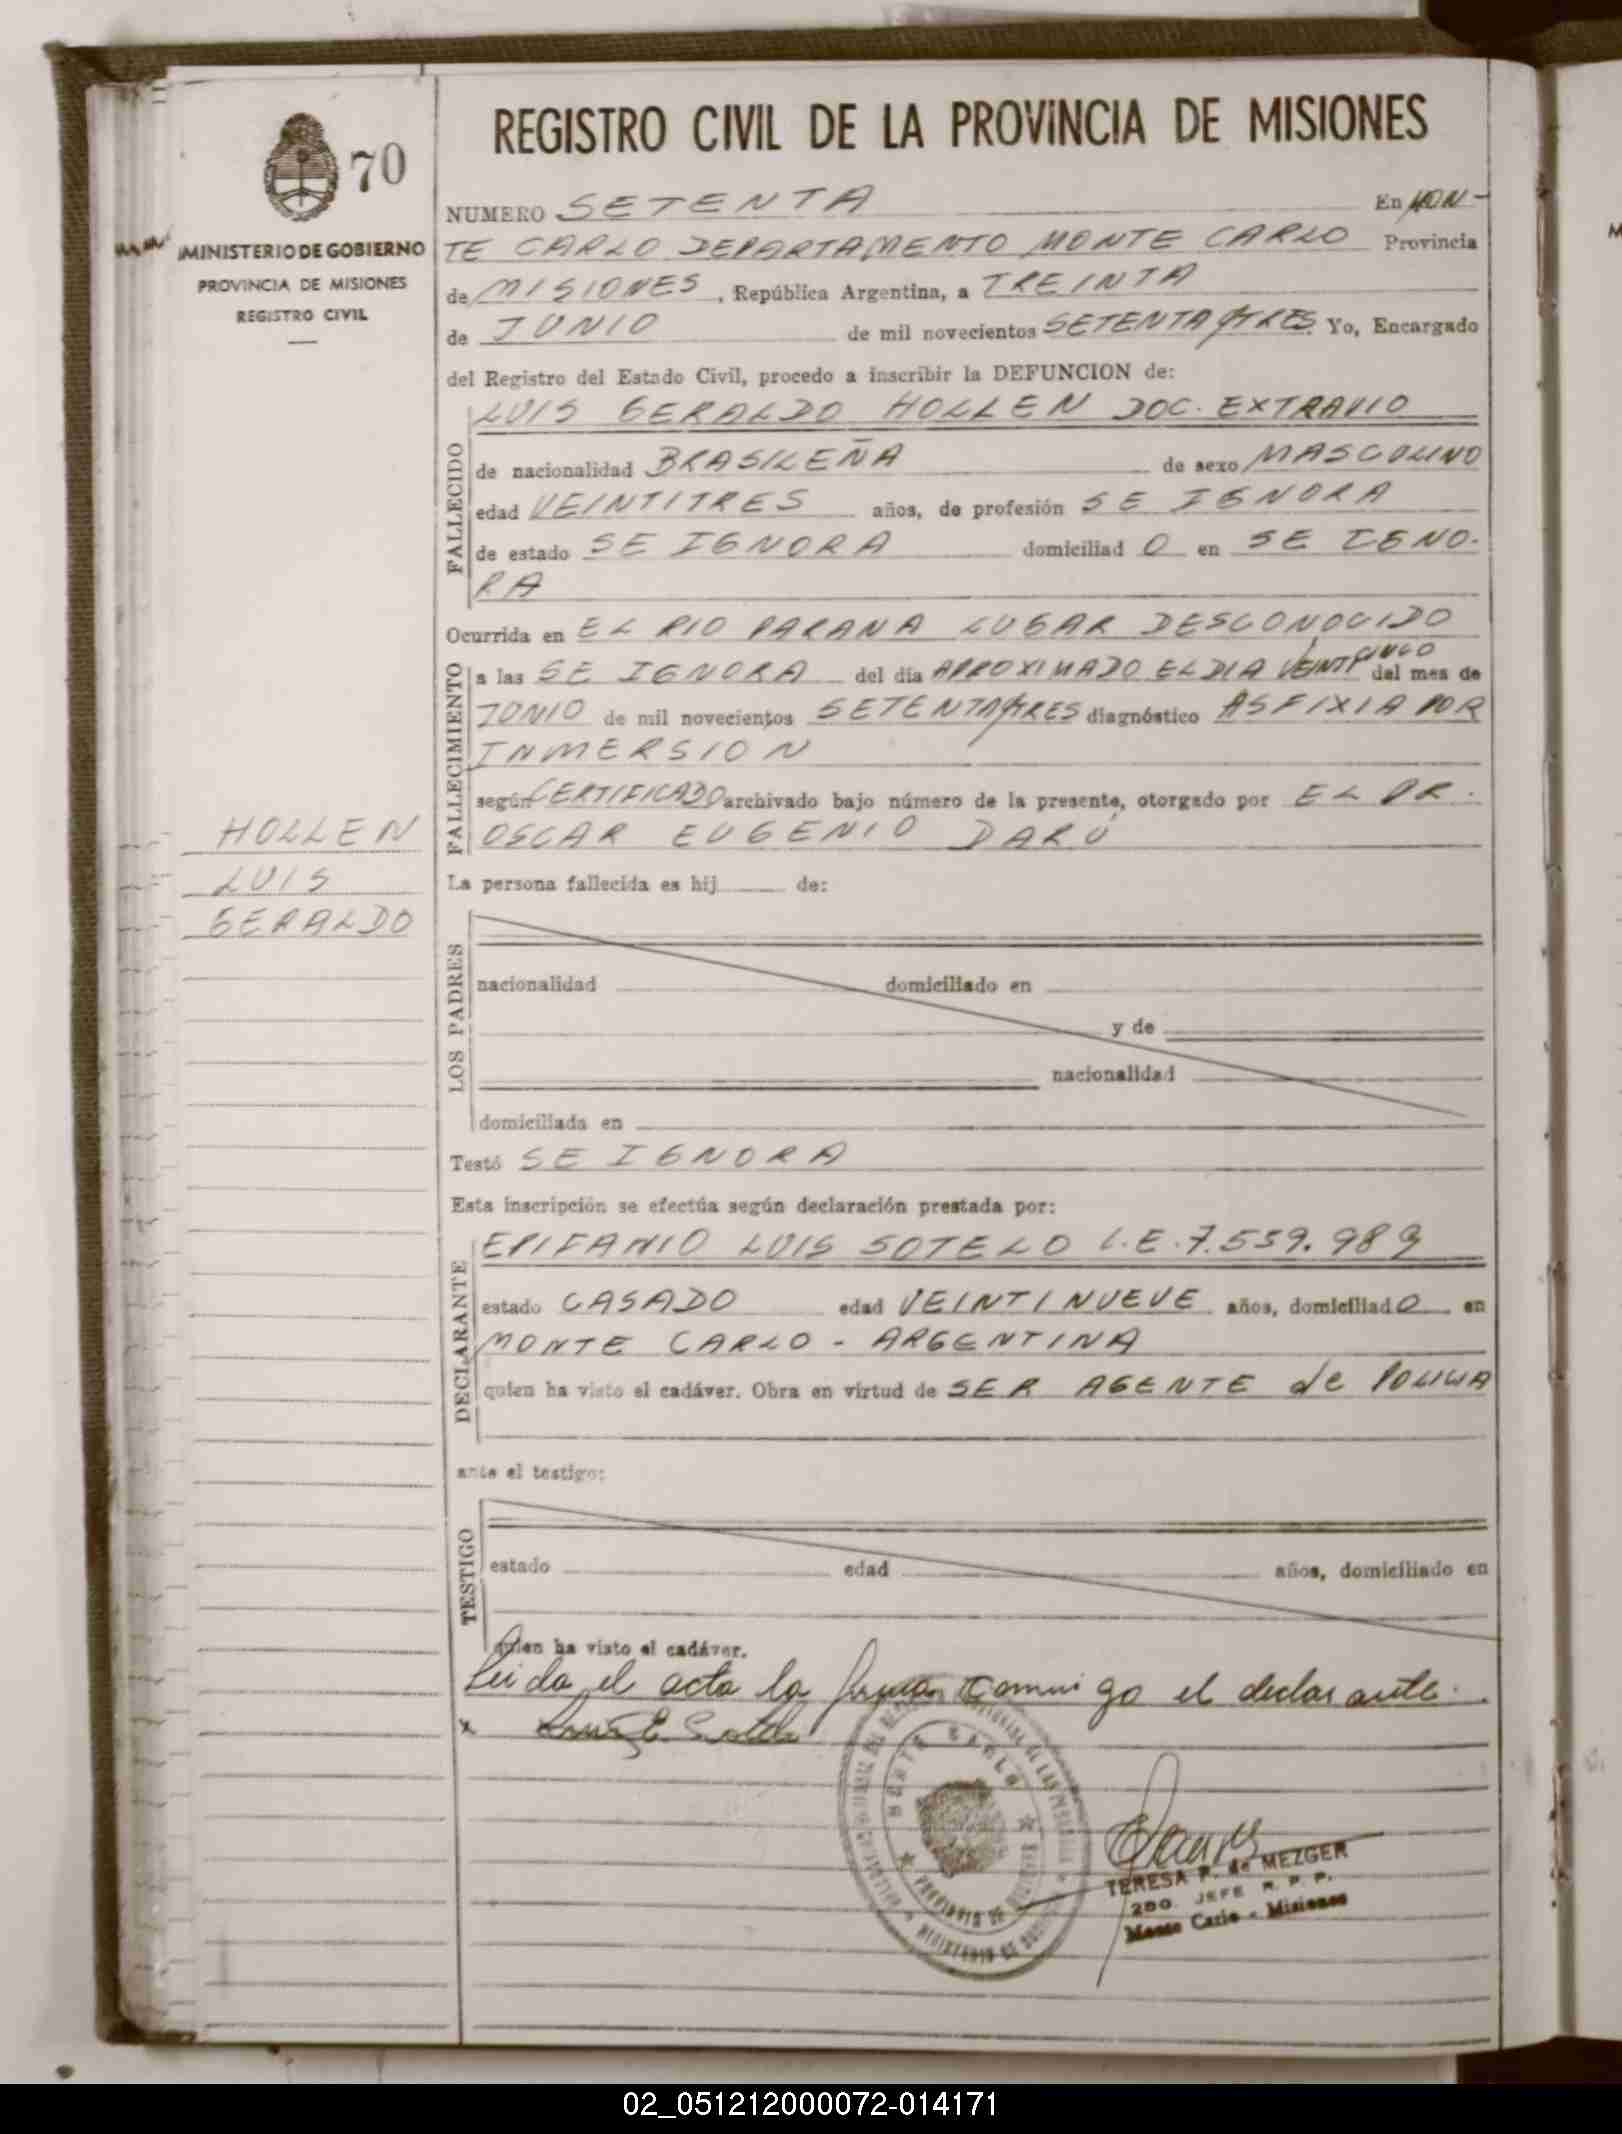 70
MINISTERIO DE GOBIERNO
PROVINCIA DE MISIONES
REGISTRO CIVIL
HOLLEN
LUIS
GERALDO
REGISTRO CIVIL DE LA PROVINCIA DE MISIONES
NUMERO SETENTA En MON-
TE CARLO DEPARTAMENTO MONTE CARLO Provincia
de MISIONES, República Argentina, a TREINTA
de JUNIO de mil novecientos SETENTA Y TRES. Yo, Encargado
del Registro del Estado Civil, procedo a inscribir la DEFUNCION de:
LUIS GERALDO HOLLEN DOC. EXTRAVIO
FALLECIDO
de nacionalidad BRASILEÑA de sexo MASCULINO
edad VEINTITRES años, de profesión SE IGNORA
de estado SE IGNORA domiciliad O en SE IGNO-
RA
Ocurrida en EL RIO PARANA LUGAR DESCONOCIDO
FALLECIMIENTO
a las SE IGNORA del día APROXIMADO EL DIA VEINTICINCO del mes de
JUNIO de mil novecientos SETENTA Y TRES diagnóstico ASFIXIA POR
INMERSION
según CERTIFICADO archivado bajo número de la presente, otorgado por EL DR.
OSCAR EUGENIO DARÚ
La persona fallecida es hij de:
LOS PADRES
nacionalidad domiciliado en
y de
nacionalidad
domiciliada en
Testó SE IGNORA
Esta inscripción se efectúa según declaración prestada por:
DECLARANTE
EPIFANIO LUIS SOTELO L.E. 7.539.989
estado CASADO edad VEINTINUEVE años, domiciliad O en
MONTE CARLO - ARGENTINA
quien ha visto el cadáver. Obra en virtud de SER AGENTE de POLICIA
ante el testigo:
TESTIGO
estado edad años, domiciliado en
quien ha visto el cadáver.
Leida el acta la firma conmigo el declarante.
x Luis E. Sotelo
MONTE CARLO
PROVINCIA DE MISIONES
TERESA P. de MEZGER
2DO. JEFE R. P. P.
Monte Carlo - Misiones
02_051212000072-014171